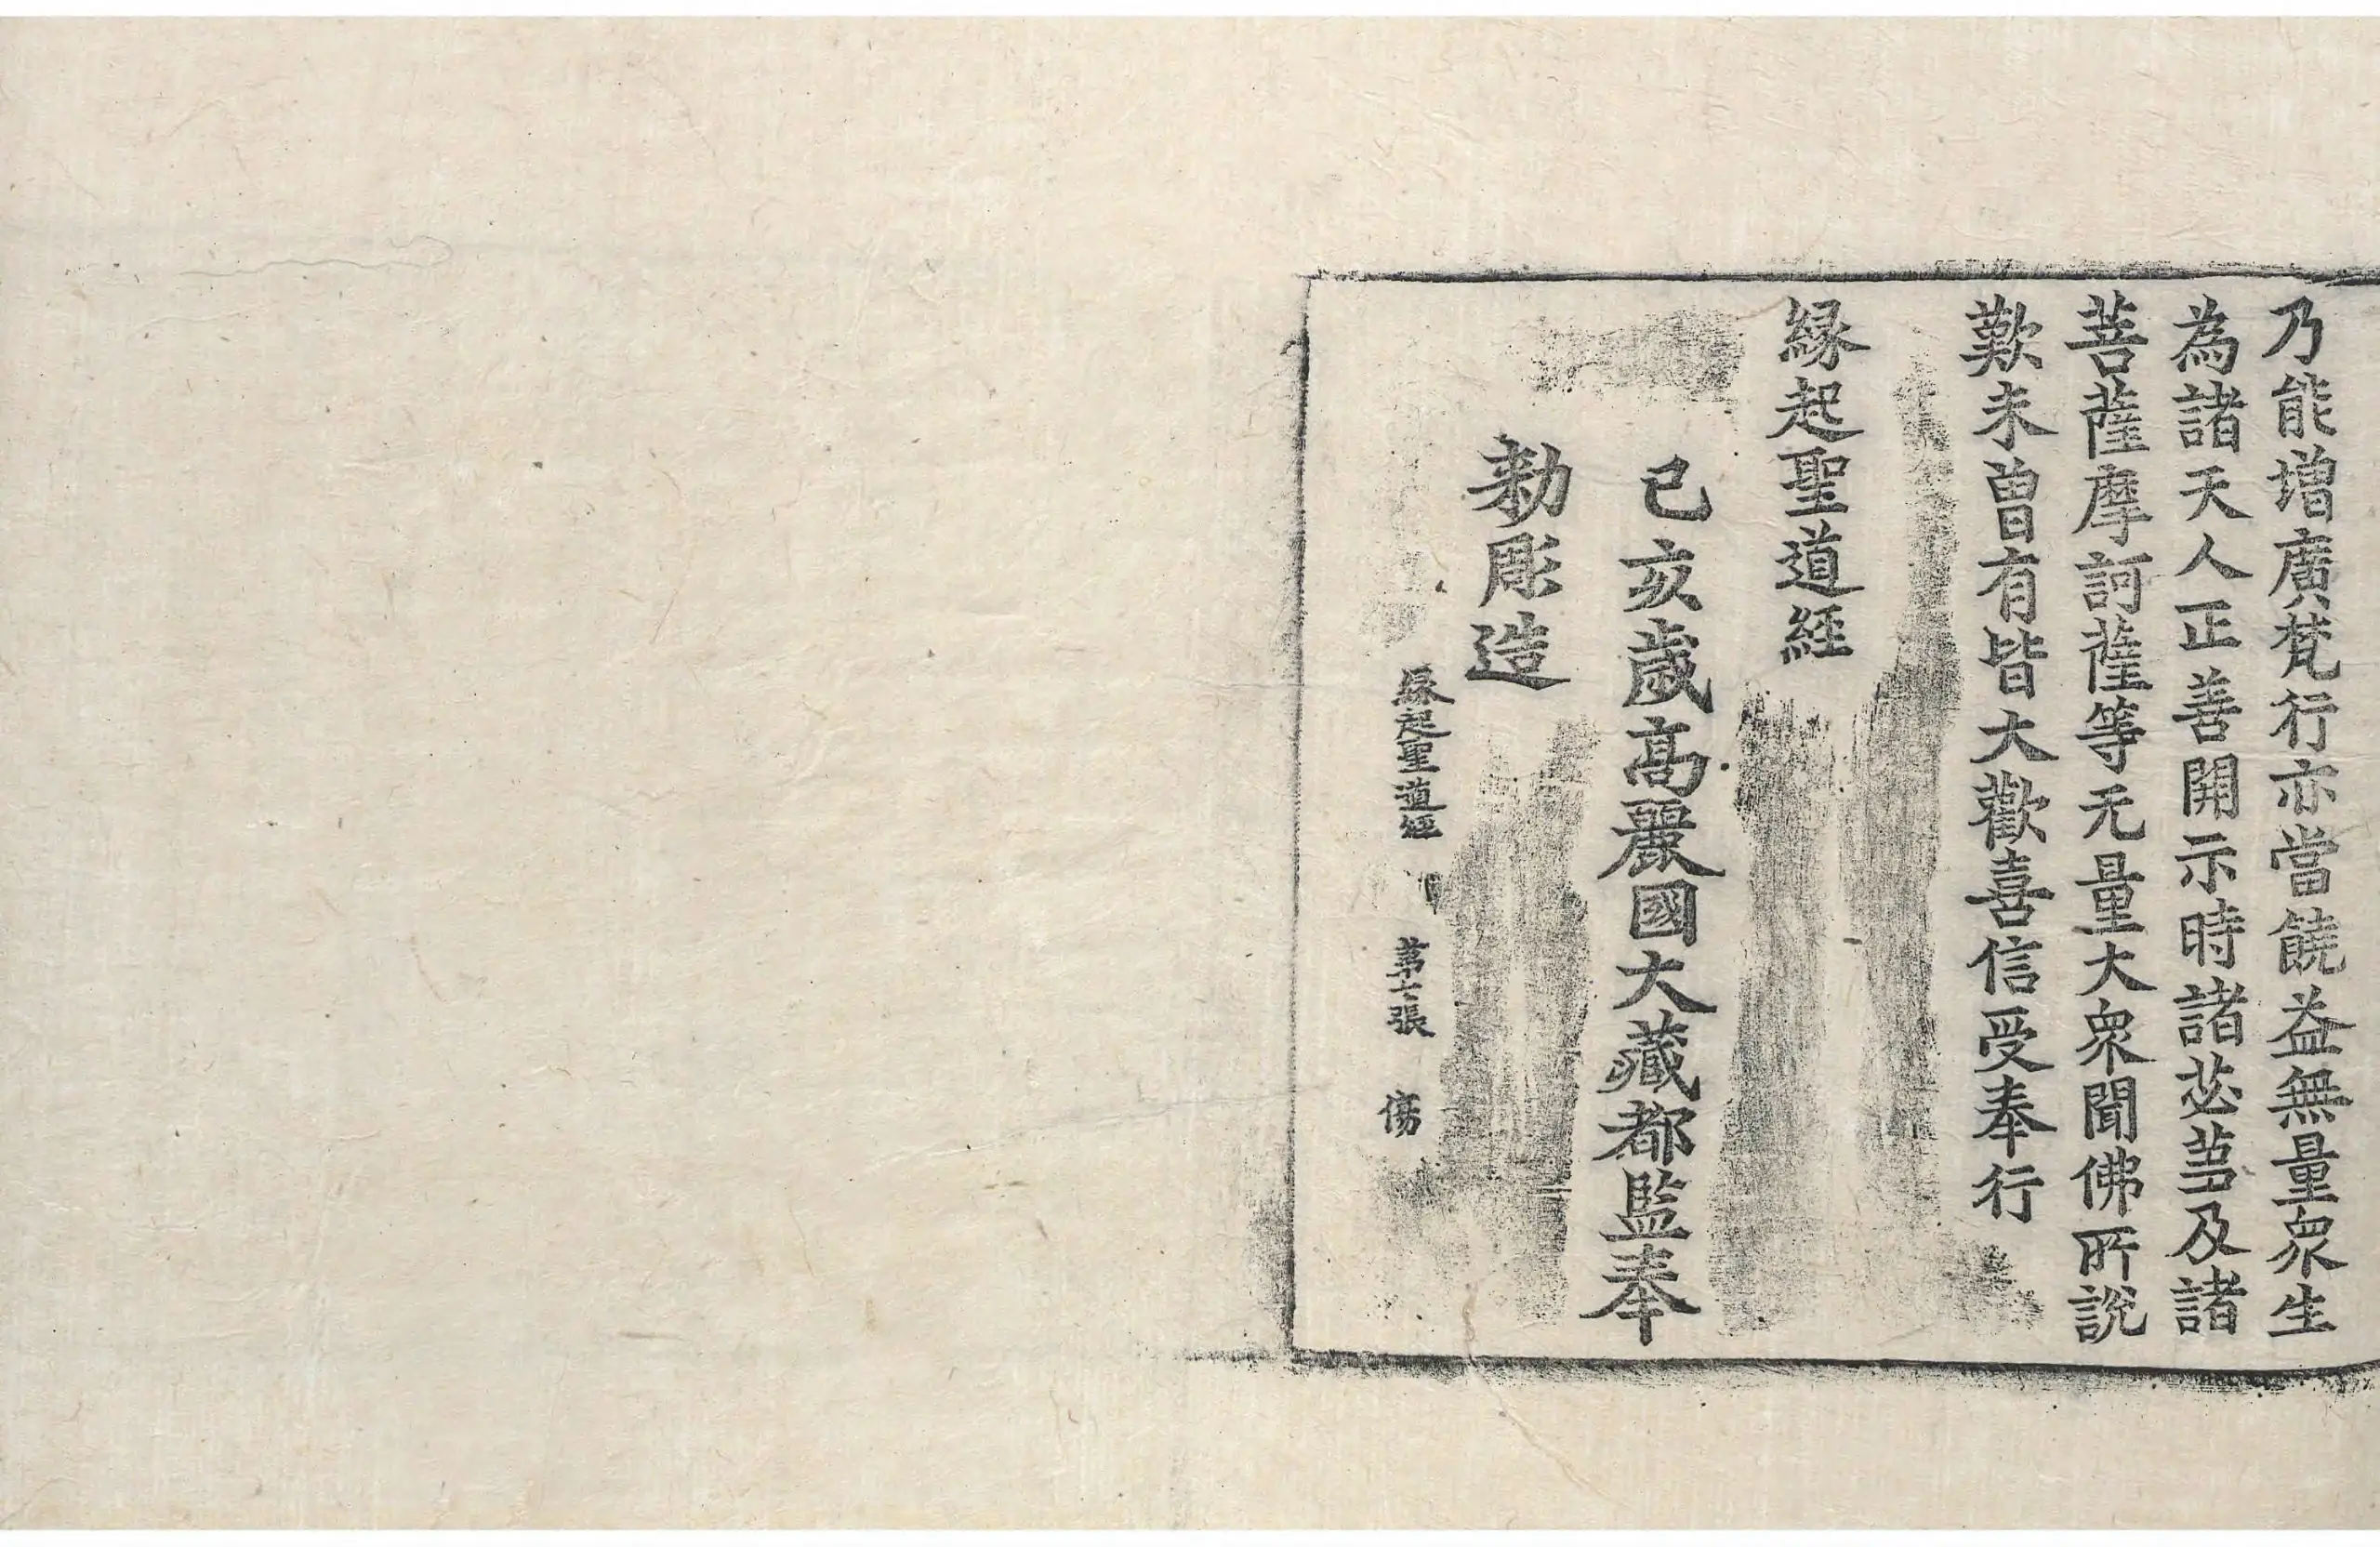 乃能增廣梵行亦當饒益無量衆生
為諸天人正善開示時諸苾蒭及諸
菩薩摩訶薩等无量大衆聞佛所說
歎未曾有皆大歡喜信受奉行
緣起聖道經
己亥歲高麗國大藏都監奉
勅彫造
緣起聖道經 第七張 傷